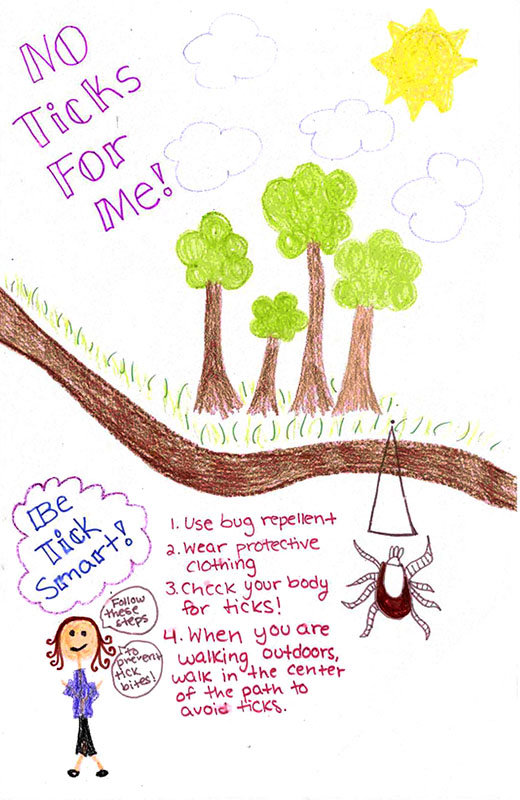 NO
Ticks
For
Me!
Be
Tick
Smart!
Follow
these
steps
to
prevent
tick
bites!
1. Use bug repellent
2. Wear protective
clothing
3. Check your body
for ticks!
4. When you are
walking outdoors,
walk in the center
of the path to
avoid ticks.